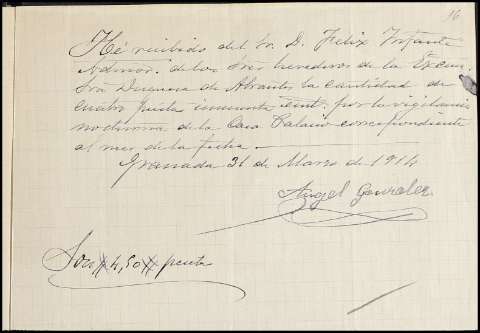 16
He recibido del Sr. D. Felix Infante
Admor. de los Sres herederos de la Excma.
Sra Duquesa de Abrantes la cantidad de
cuatro peseta cincuenta cent. por la vigilancia
nocturna de la Casa Palacio correspondiente
al mes de la fecha.
Granada 31 de Marzo de 1914
Angel Gonzalez
Son 4,50 peseta